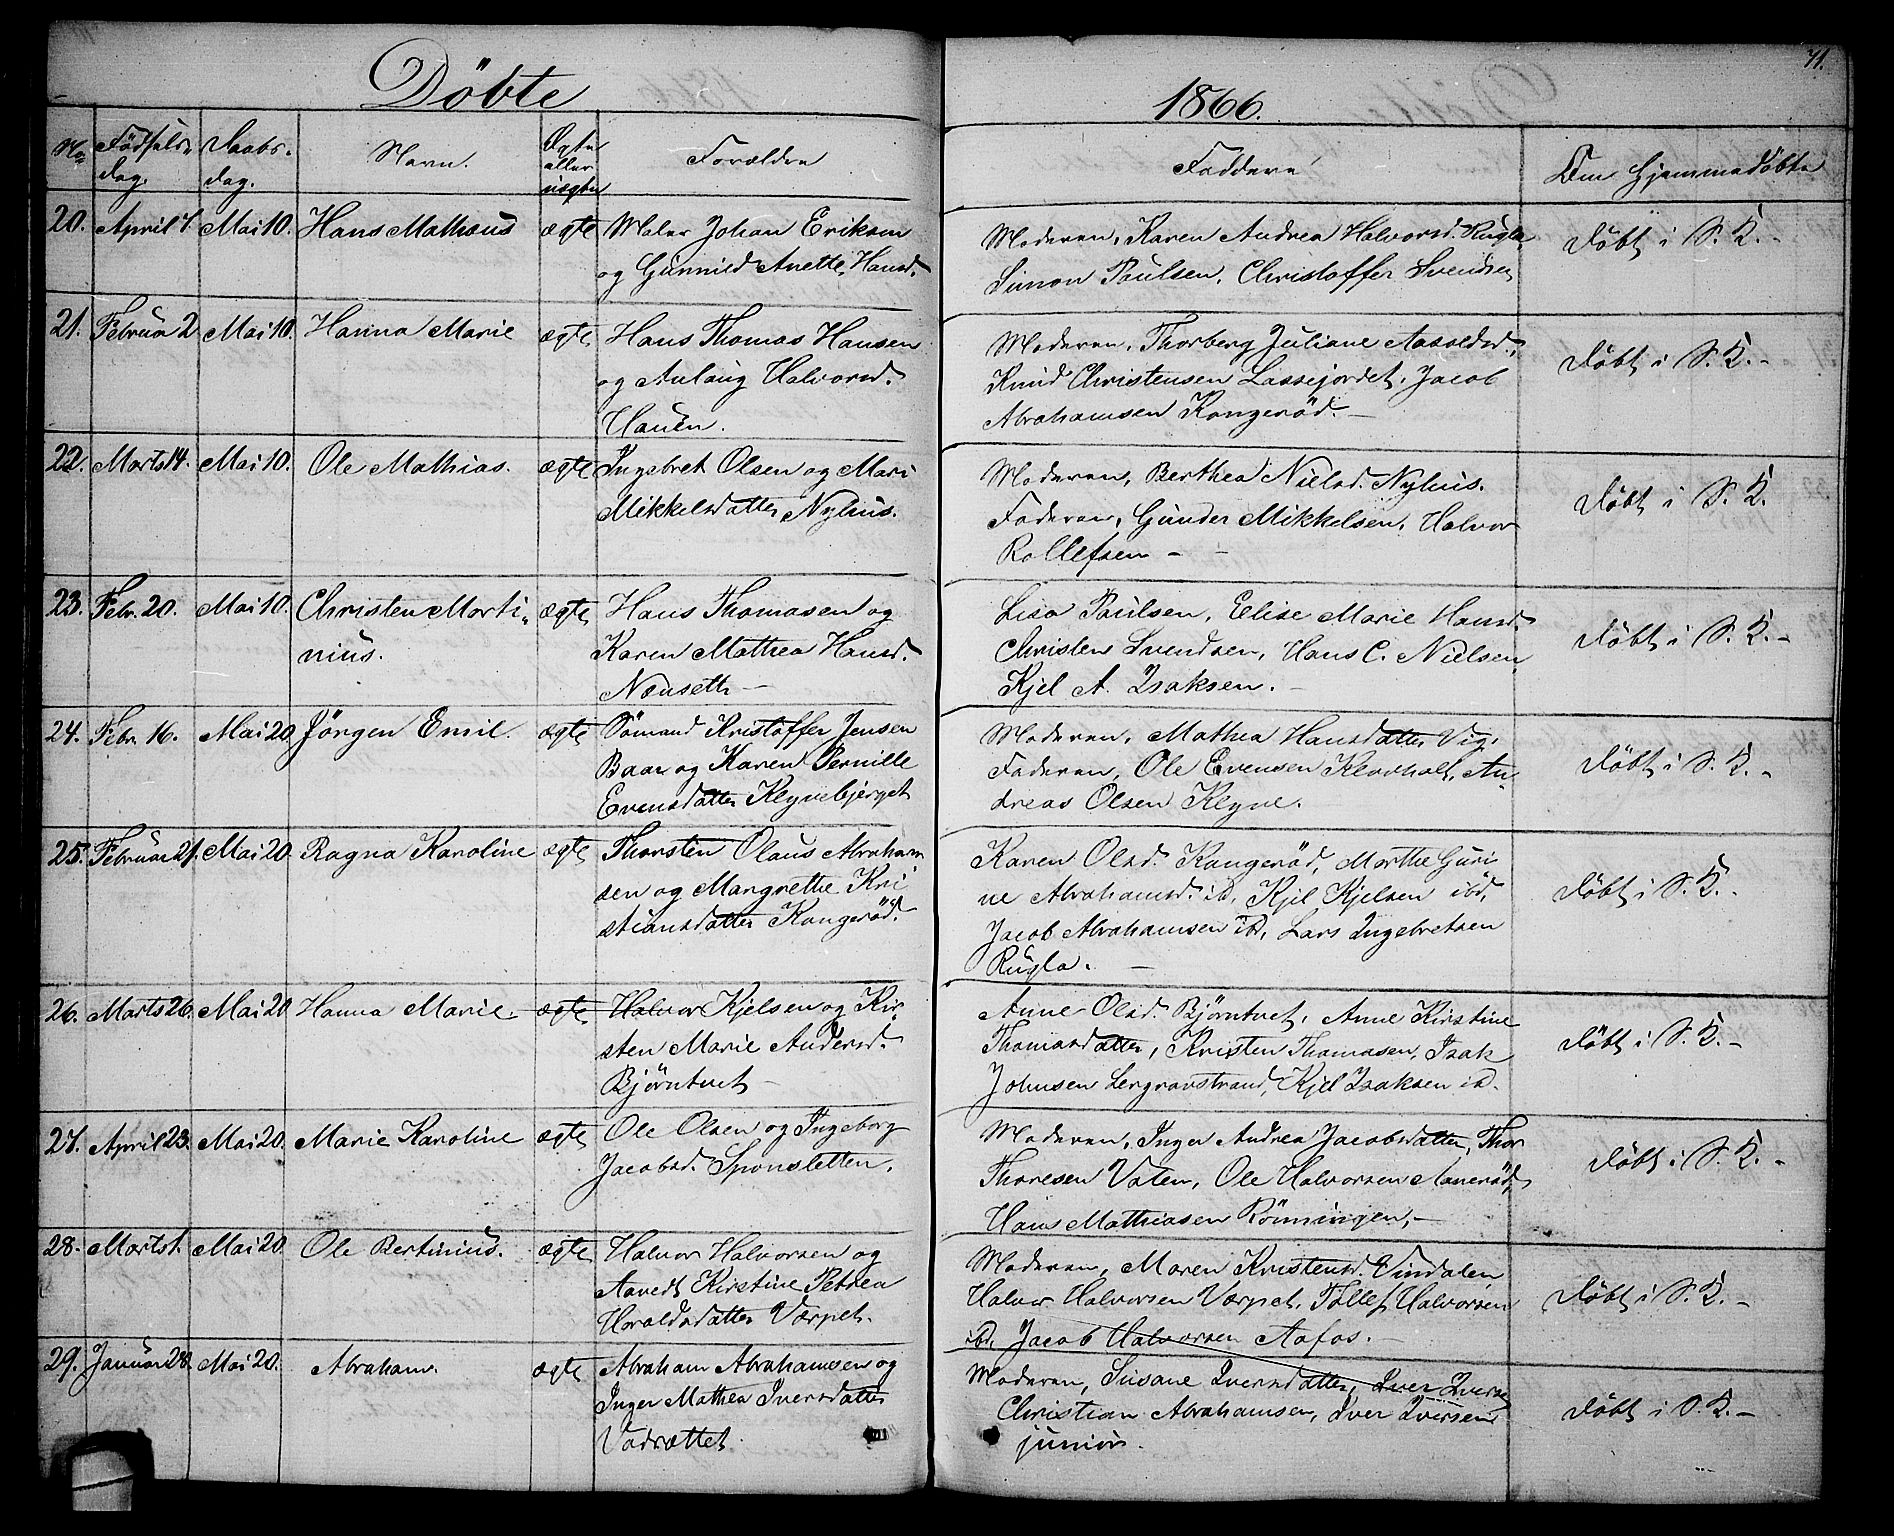 Döbte
1866.
71.
No Födsels- Daabs- Navn. Ægte Forældre Faddere Om Hjemmedöbte
dag. dag. eller
uægte
20. April 7. Mai 10. Hans Mathæus ægte Maler Johan Eriksen
og Gunnild Anette Hansd.
Moderen, Karen Andrea Halvorsd. Rugla
Simon Paulsen, Christoffer Svendsen
Döbt i S. K. -
21. Februar 2 Mai 10. Hanna Marie ægte Hans Thomas Hansen
og Anlaug Halvorsd.
Hauen.
Moderen, Thorberg Juliane Aasoldsd.,
Knud Christensen Lassejordet, Jacob
Abrahamsen Kongeröd. -
Döbt i S. K. -
22. Marts 14. Mai 10. Ole Mathias. ægte Ingebret Olsen og Mari
Mikkelsdatter Nyhus.
Moderen, Berthea Nielsd. Nyhus.
Faderen, Gunder Mikkelsen, Halvor
Rollefsen -
Döbt i S. K.
23. Febr. 20. Mai 10. Christen Marti- ægte Hans Thomasen og
nius. Karen Mathea Hansd.
Nænseth -
Lisa Paulsen, Elise Marie Hansd.
Christen Svendsen, Hans C. Nielsen,
Kjel A. Isaksen. -
Döbt i S. K. -
24. Febr. 16. Mai 20. Jörgen Emil. ægte Sömand Kristoffer Jensen
Baar og Karen Pernille
Evensdatter Klyvebjerget
Moderen, Mathea Hansdatter Vig,
Faderen, Ole Evensen Klovholt, An-
dreas Olsen Klyve.
Döbt i S. K. -
25. Februar 21. Mai 20. Ragna Karoline ægte Thorsten Olaus Abraham
sen og Margrethe Kri
stiansdatter Kongeröd.
Karen Olsd. Kongeröd, Marthe Guri
ne Abrahamsd. ib, Kjel Kjelsen ibd,
Jacob Abrahamsen ib, Lars Ingebretsen
Rugla. -
Döbt i S. K. -
26. Marts 26. Mai 20 Hanna Marie. ægte Halvor Kjelsen og Kir-
sten Marie Andersd.
Bjørntvet -
Anne Olsd. Björntvet, Anne Kirstine
Thomasdatter, Kristen Thomasen, Isak
Johnsen Lergravstrand, Kjel Isaksen ib.
Döbt i S. K. -
27. April 23. Mai 20. Marie Karoline ægte Ole Olsen og Ingeborg
Jacobsd. Sponsletten.
Moderen, Inger Andrea Jacobsdatter, Thor
Thoresen Valen, Ole Halvorsen Aaneröd,
Hans Mathiasen Rönningen, -
Döbt i S. K. -
28. Marts 1. Mai 20 Ole Bertinius. ægte Halvor Halvorsen og
Kirstine Petrea
Haroldsdatter Værpet.
Moderen, Maren Kristensd. Vindalen,
Halvor Halvorsen Værpet, Tollef Halvorsen
ibd. Jacob Halvorsen Aafos. -
Döbt i S. K. -
29. Januar 28. Mai 20. Abraham. ægte Abraham Abrahamsen og
Inger Mathea Iversdatter
Vadrættet.
Moderen, Susane Iversdatter, Iver Iversen
Christian Abrahamsen, Iver Iversen
junior.
Döbt i S. K. -